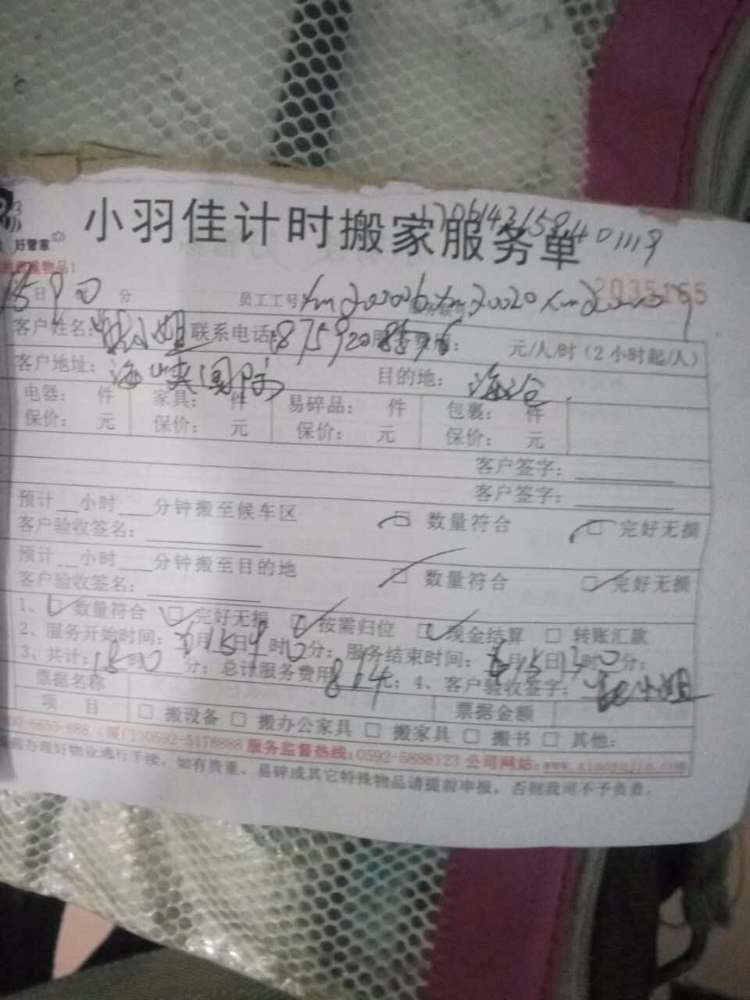 小羽佳计时搬家服务单
好管家
2035165
15日9 0分 员工工号
客户姓名: 小姐 联系电话: 元/人/时(2小时起/人)
客户地址: 海峡国际 目的地: 海沧
电器: 件 家具: 件 易碎品: 件 包裹: 件
保价: 元 保价: 元 保价: 元 保价: 元
客户签字:
客户签字:
预计 小时 分钟搬至候车区 □ 数量符合 □ 完好无损
客户验收签名:
预计 小时 分钟搬至目的地 □ 数量符合 □ 完好无损
客户验收签名:
1、□ 数量符合 □ 完好无损 □ 按需归位 □ 现金结算 □ 转账汇款
2、服务开始时间: 月15日9时0分; 服务结束时间: 月15日 时0分;
3、共计: 分; 总计服务费用 元; 4、客户验收签字: 小姐
票据名称 票据金额
项 目 □ 搬设备 □ 搬办公家具 □ 搬家具 □ 搬书 □ 其他:
(厦门)0592-5178888 服务监督热线:0592-5888123 公司网站:
办理好物业通行手续, 如有贵重、易碎或其它特殊物品请提前申报, 否则我司不予负责。